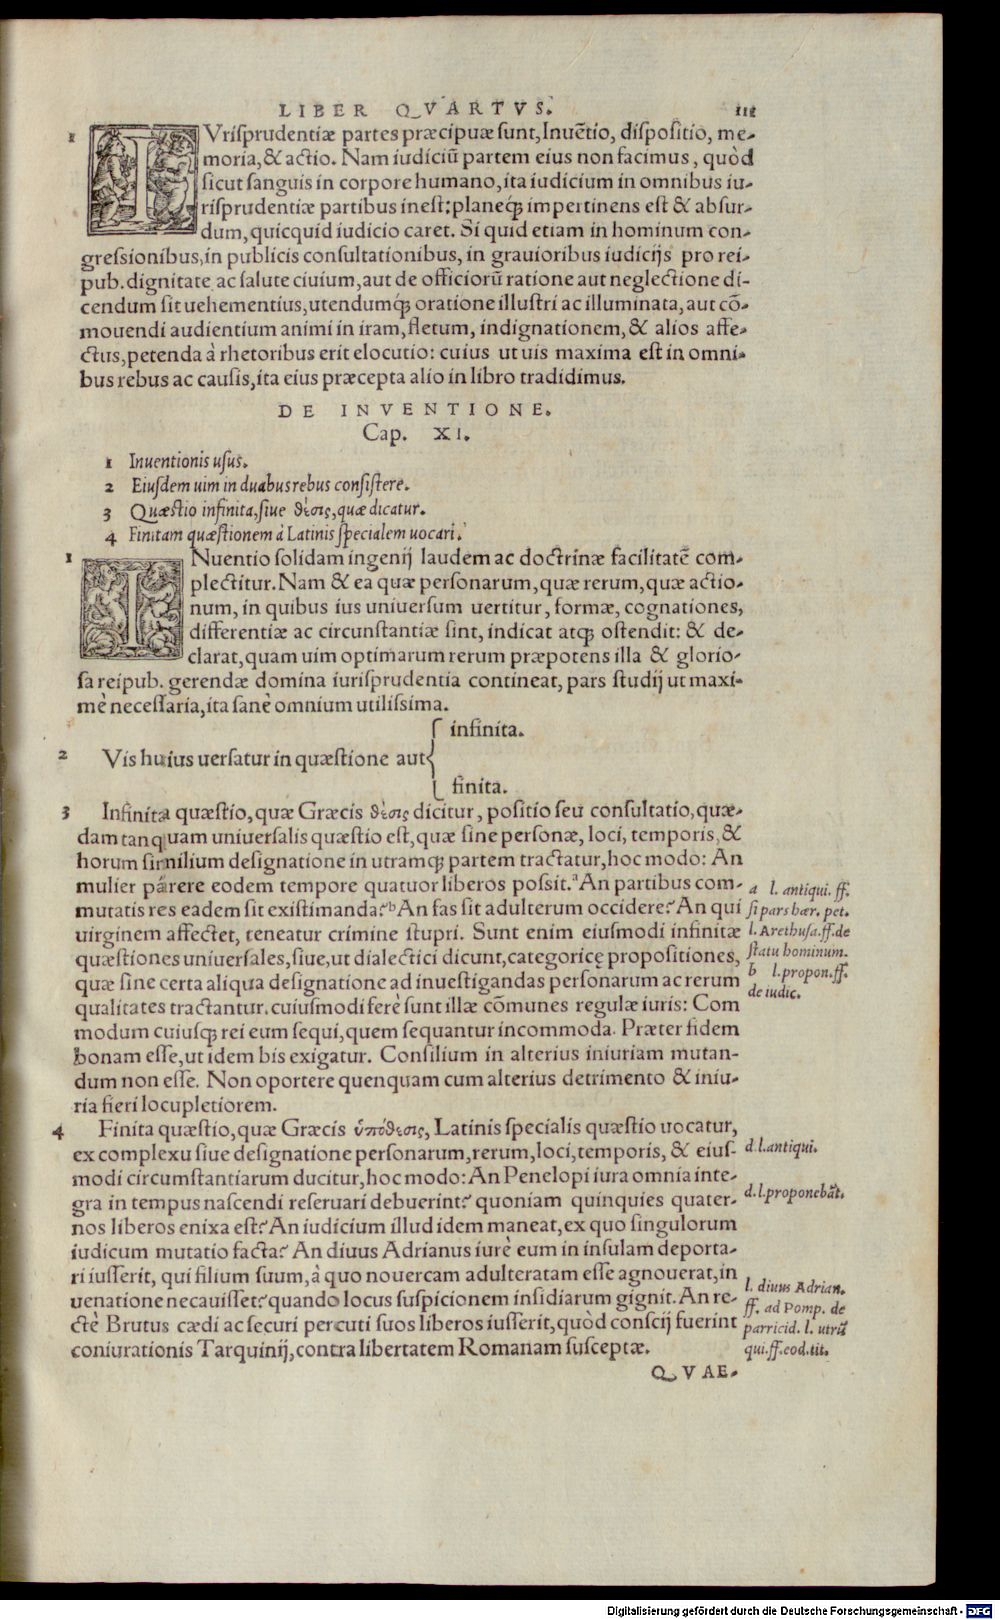 LIBER QVARTVS. 111
1 IVrisprudentiæ partes præcipuæ sunt, Inuẽtio, dispositio, me-
moria, & actio. Nam iudiciũ partem eius non facimus, quòd
sicut sanguis in corpore humano, ita iudicium in omnibus iu-
risprudentiæ partibus inest: planeq́; impertinens est & absur-
dum, quicquid iudicio caret. Si quid etiam in hominum con-
gressionibus, in publicis consultationibus, in grauioribus iudicijs pro rei-
pub. dignitate ac salute ciuium, aut de officiorũ ratione aut neglectione di-
cendum sit uehementius, utendumq́; oratione illustri ac illuminata, aut cõ-
mouendi audientium animi in iram, fletum, indignationem, & alios affe-
ctus, petenda à rhetoribus erit elocutio: cuius ut uis maxima est in omni-
bus rebus ac causis, ita eius præcepta alio in libro tradidimus.
DE INVENTIONE.
Cap. XI.
1 Inuentionis usus.
2 Eiusdem uim in duabus rebus consistere.
3 Quæstio infinita, siue θέσις, quæ dicatur.
4 Finitam quæstionem à Latinis specialem uocari.
1 INuentio solidam ingenij laudem ac doctrinæ facilitatẽ com-
plectitur. Nam & ea quæ personarum, quæ rerum, quæ actio-
num, in quibus ius uniuersum uertitur, formæ, cognationes,
differentiæ ac circunstantiæ sint, indicat atq; ostendit: & de-
clarat, quam uim optimarum rerum præpotens illa & glorio-
sa reipub. gerendæ domina iurisprudentia contineat, pars studij ut maxi-
mè necessaria, ita sanè omnium utilissima.
infinita.
2 Vis huius uersatur in quæstione aut
finita.
3 Infinita quæstio, quæ Græcis θέσις dicitur, positio seu consultatio, quæ-
dam tanquam uniuersalis quæstio est, quæ sine personæ, loci, temporis, &
horum similium designatione in utramq; partem tractatur, hoc modo: An
mulier parere eodem tempore quatuor liberos possit.ᵃ An partibus com-
mutatis res eadem sit existimanda?ᵇ An fas sit adulterum occidere? An qui
uirginem affectet, teneatur crimine stupri. Sunt enim eiusmodi infinitæ
quæstiones uniuersales, siue, ut dialectici dicunt, categoricę propositiones,
quæ sine certa aliqua designatione ad inuestigandas personarum ac rerum
qualitates tractantur. cuiusmodi ferè sunt illæ cõmunes regulæ iuris: Com
modum cuiusq; rei eum sequi, quem sequantur incommoda. Præter fidem
bonam esse, ut idem bis exigatur. Consilium in alterius iniuriam mutan-
dum non esse. Non oportere quenquam cum alterius detrimento & iniu-
ria fieri locupletiorem.
a l. antiqui. ff.
si pars hær. pet.
l. Arethusa. ff. de
statu hominum.
b l. propon. ff.
de iudic.
4 Finita quæstio, quæ Græcis ὑπόθεσις, Latinis specialis quæstio uocatur,
ex complexu siue designatione personarum, rerum, loci, temporis, & eius-
modi circumstantiarum ducitur, hoc modo: An Penelopi iura omnia inte-
gra in tempus nascendi reseruari debuerint? quoniam quinquies quater-
nos liberos enixa est? An iudicium illud idem maneat, ex quo singulorum
iudicum mutatio facta? An diuus Adrianus iurè eum in insulam deporta-
ri iusserit, qui filium suum, à quo nouercam adulteratam esse agnouerat, in
uenatione necauisset? quando locus suspicionem insidiarum gignit. An re-
ctè Brutus cædi ac securi percuti suos liberos iusserit, quòd conscij fuerint
coniurationis Tarquinij, contra libertatem Romanam susceptæ.
d. l. antiqui.
d. l. proponebat̃.
l. diuus Adrian.
ff. ad Pomp. de
parricid. l. utrũ
qui. ff. eod. tit.
QVAE-
Digitalisierung gefördert durch die Deutsche Forschungsgemeinschaft - DFG